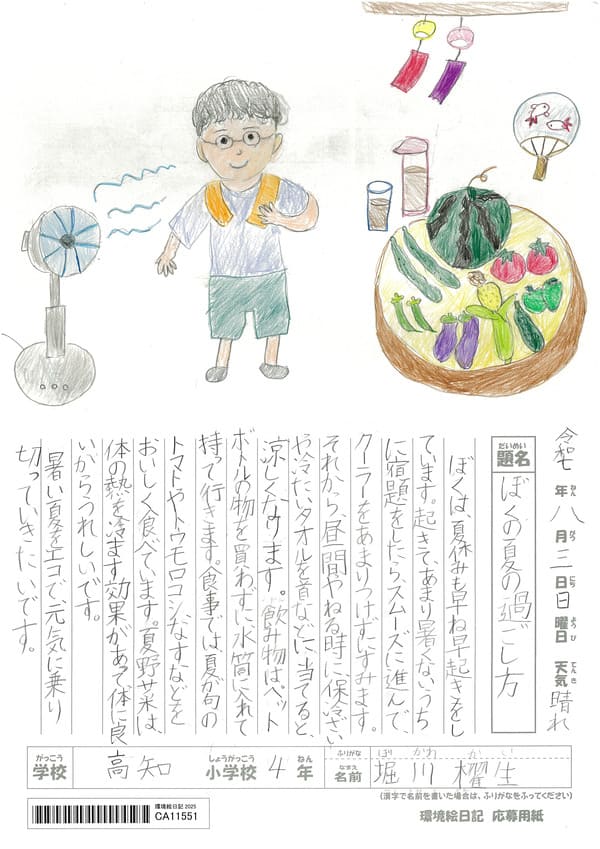 令和七年八月三日日曜日 天気 晴れ
ねん がつ にち ようび てんき
だいめい
題名 ぼくの夏の過ごし方
ぼくは、夏休みも早ね早起きをし
ています。起きて、あまり暑くないうち
に宿題をしたら、スムーズに進んで、
クーラーをあまりつけずにすみます。
それから、昼間やねる時に、保冷ざい
や冷たいタオルを首などに当てると、
涼しくなります。飲み物はペット
ボトルの物を買わずに水筒に入れて
持って行きます。食事では、夏が旬の
トマトやトウモロコシなすなどを
おいしく食べています。夏野菜は、
体の熱を冷ます効果があって体に良
いからうれしいです。
暑い夏をエコで、元気に乗り
切っていきたいです。
がっこう しょうがっこう ねん ふりがな ほり かわ かい
学校 高知 小学校 4年 なまえ 名前 堀川 櫂生
(漢字で名前を書いた場合は、ふりがなをふってください)
環境絵日記 応募用紙
環境絵日記 2025
CA11551